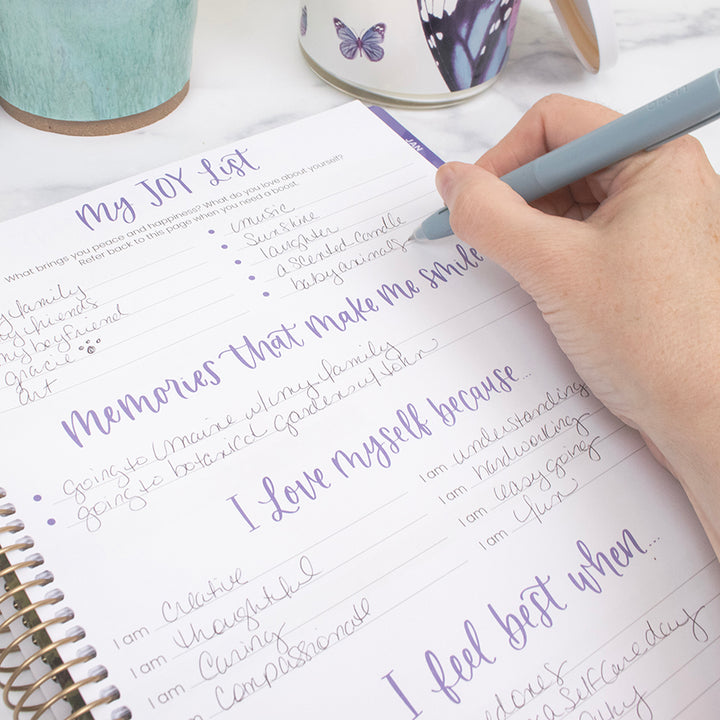 JAN
My JOY List
What brings you peace and happiness? What do you love about yourself?
Refer back to this page when you need a boost.
my family
my friends
my boyfriend
gracie
art
music
Sunshine
laughter
a scented candle
baby animals
Memories that make me smile
going to Maine w/my family
going to botanical gardens w/John
I Love myself because...
I am creative
I am thoughtful
I am caring
I am compassionate
I am understanding
I am hardworking
I am easy going
I am fun
I feel best when...
a Self Care day